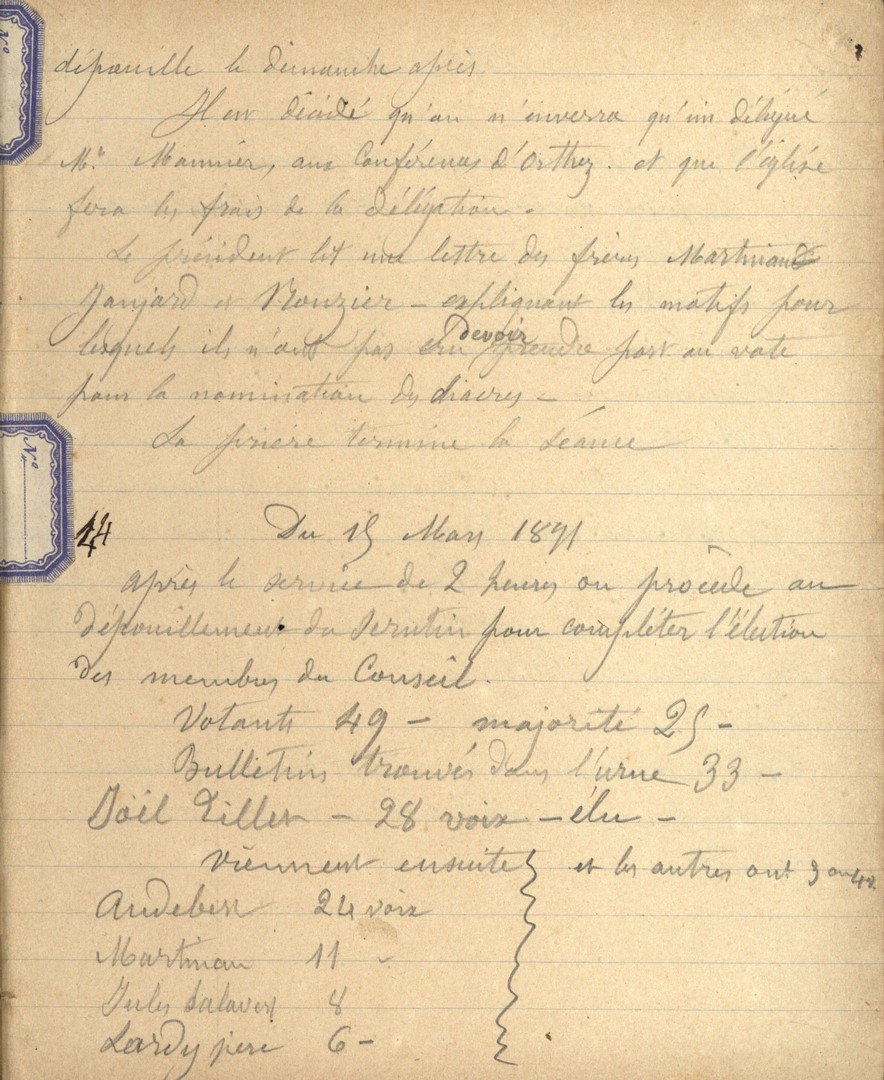 N°
dépouille le dimanche après
Il est décidé qu'on n'enverra qu'un délégué
Mr. Monnier, aux Conférences d'Orthez. et que l'église
fera les frais de la délégation.
Le président lit une lettre des frères Martineau
Janjard et Rouzier - expliquant les motifs pour
lesquels ils n'ont pas cru devoir prendre part au vote
pour la nomination des diacres -
La prière termine la séance
N°
14
Du 15 Mars 1891
après le service de 2 heures on procède au
dépouillement du scrutin pour compléter l'élection
des membres du Conseil.
Votants 49 - majorité 25 -
Bulletins trouvés dans l'urne 33 -
Joël Tillet - 28 voix - élu -
Viennent ensuite et les autres ont 3 ou 4 v.
Audebert 24 voix
Martineau 11 -
Jules Salavert 8
Lardy père 6 -